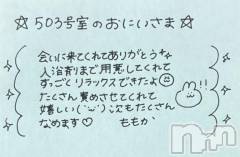 ☆503号室のおにいさま☆
会いに来てくれてありがとう♡
入浴剤まで用意してくれて
すっごくリラックスできたよ☺
たくさん責めさせてくれて
嬉しい(´ー`)次もたくさん
なめます♡ ももか
!!